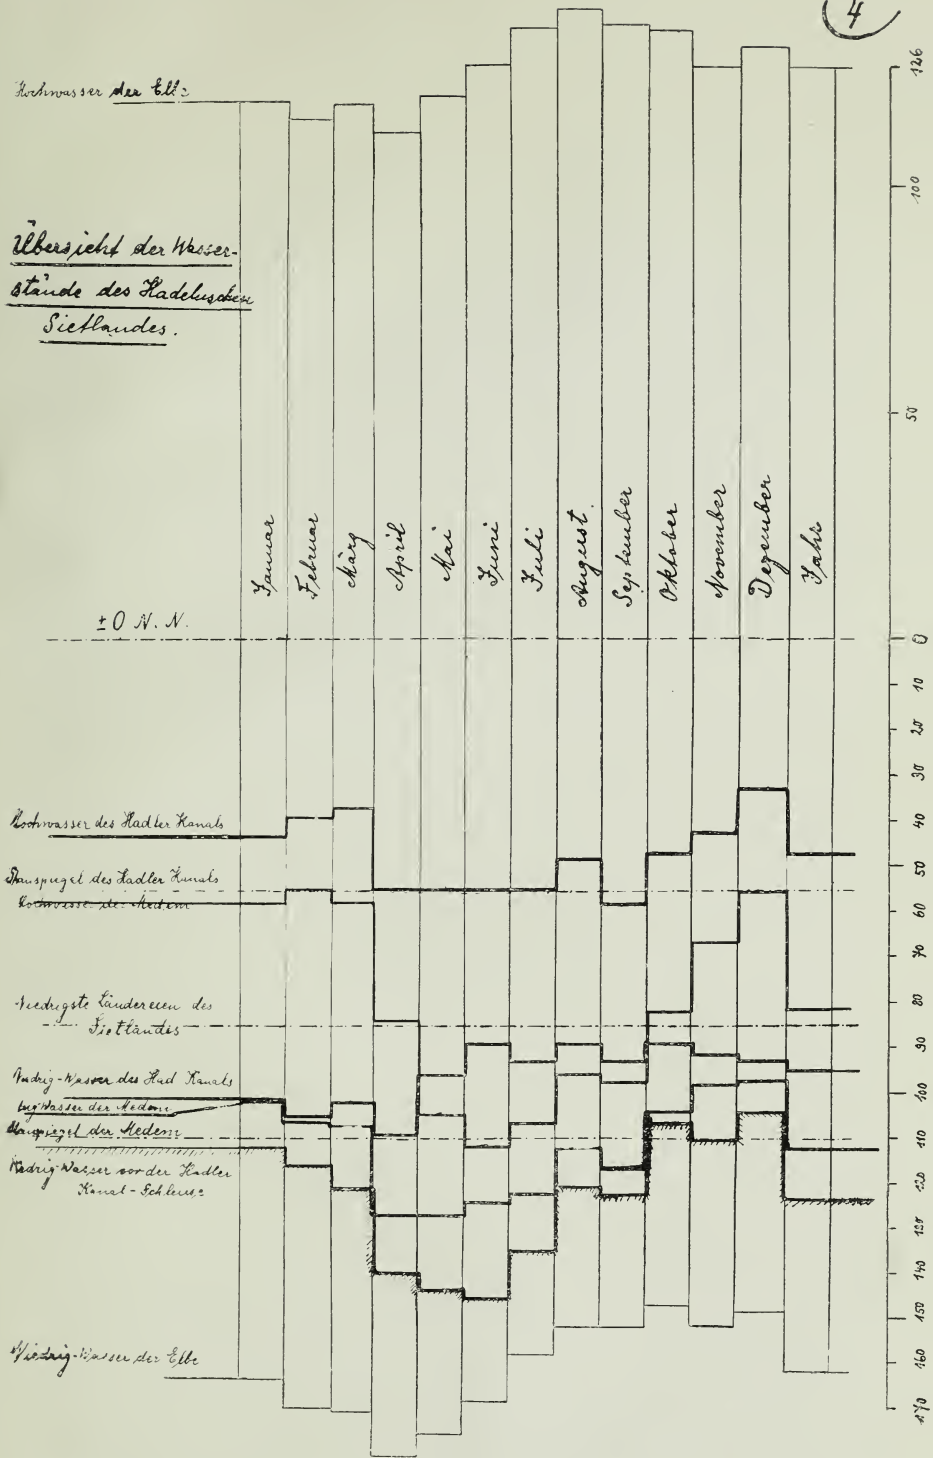 4
Hochwasser der Elbe
Übersicht der Wasser-
stände des Hadelnschen
Sietlandes.
Januar
Februar
März
April
Mai
Juni
Juli
August.
September
Oktober
November
Dezember
Jahr
± 0 N. N.
Hochwasser des Hadler Kanals
Stauspiegel des Hadler Kanals
Hochwasser der Medem
Niedrigste Ländereien des
Sietlandes
Niedrig-Wasser des Had Kanals
Wasser der Medem
Stauspiegel der Medem
Niedrig-Wasser vor der Hadler
Kanal-Schleuse
Niedrig-Wasser der Elbe
126
100
50
0
10
20
30
40
50
60
70
80
90
100
110
120
120
140
150
160
170